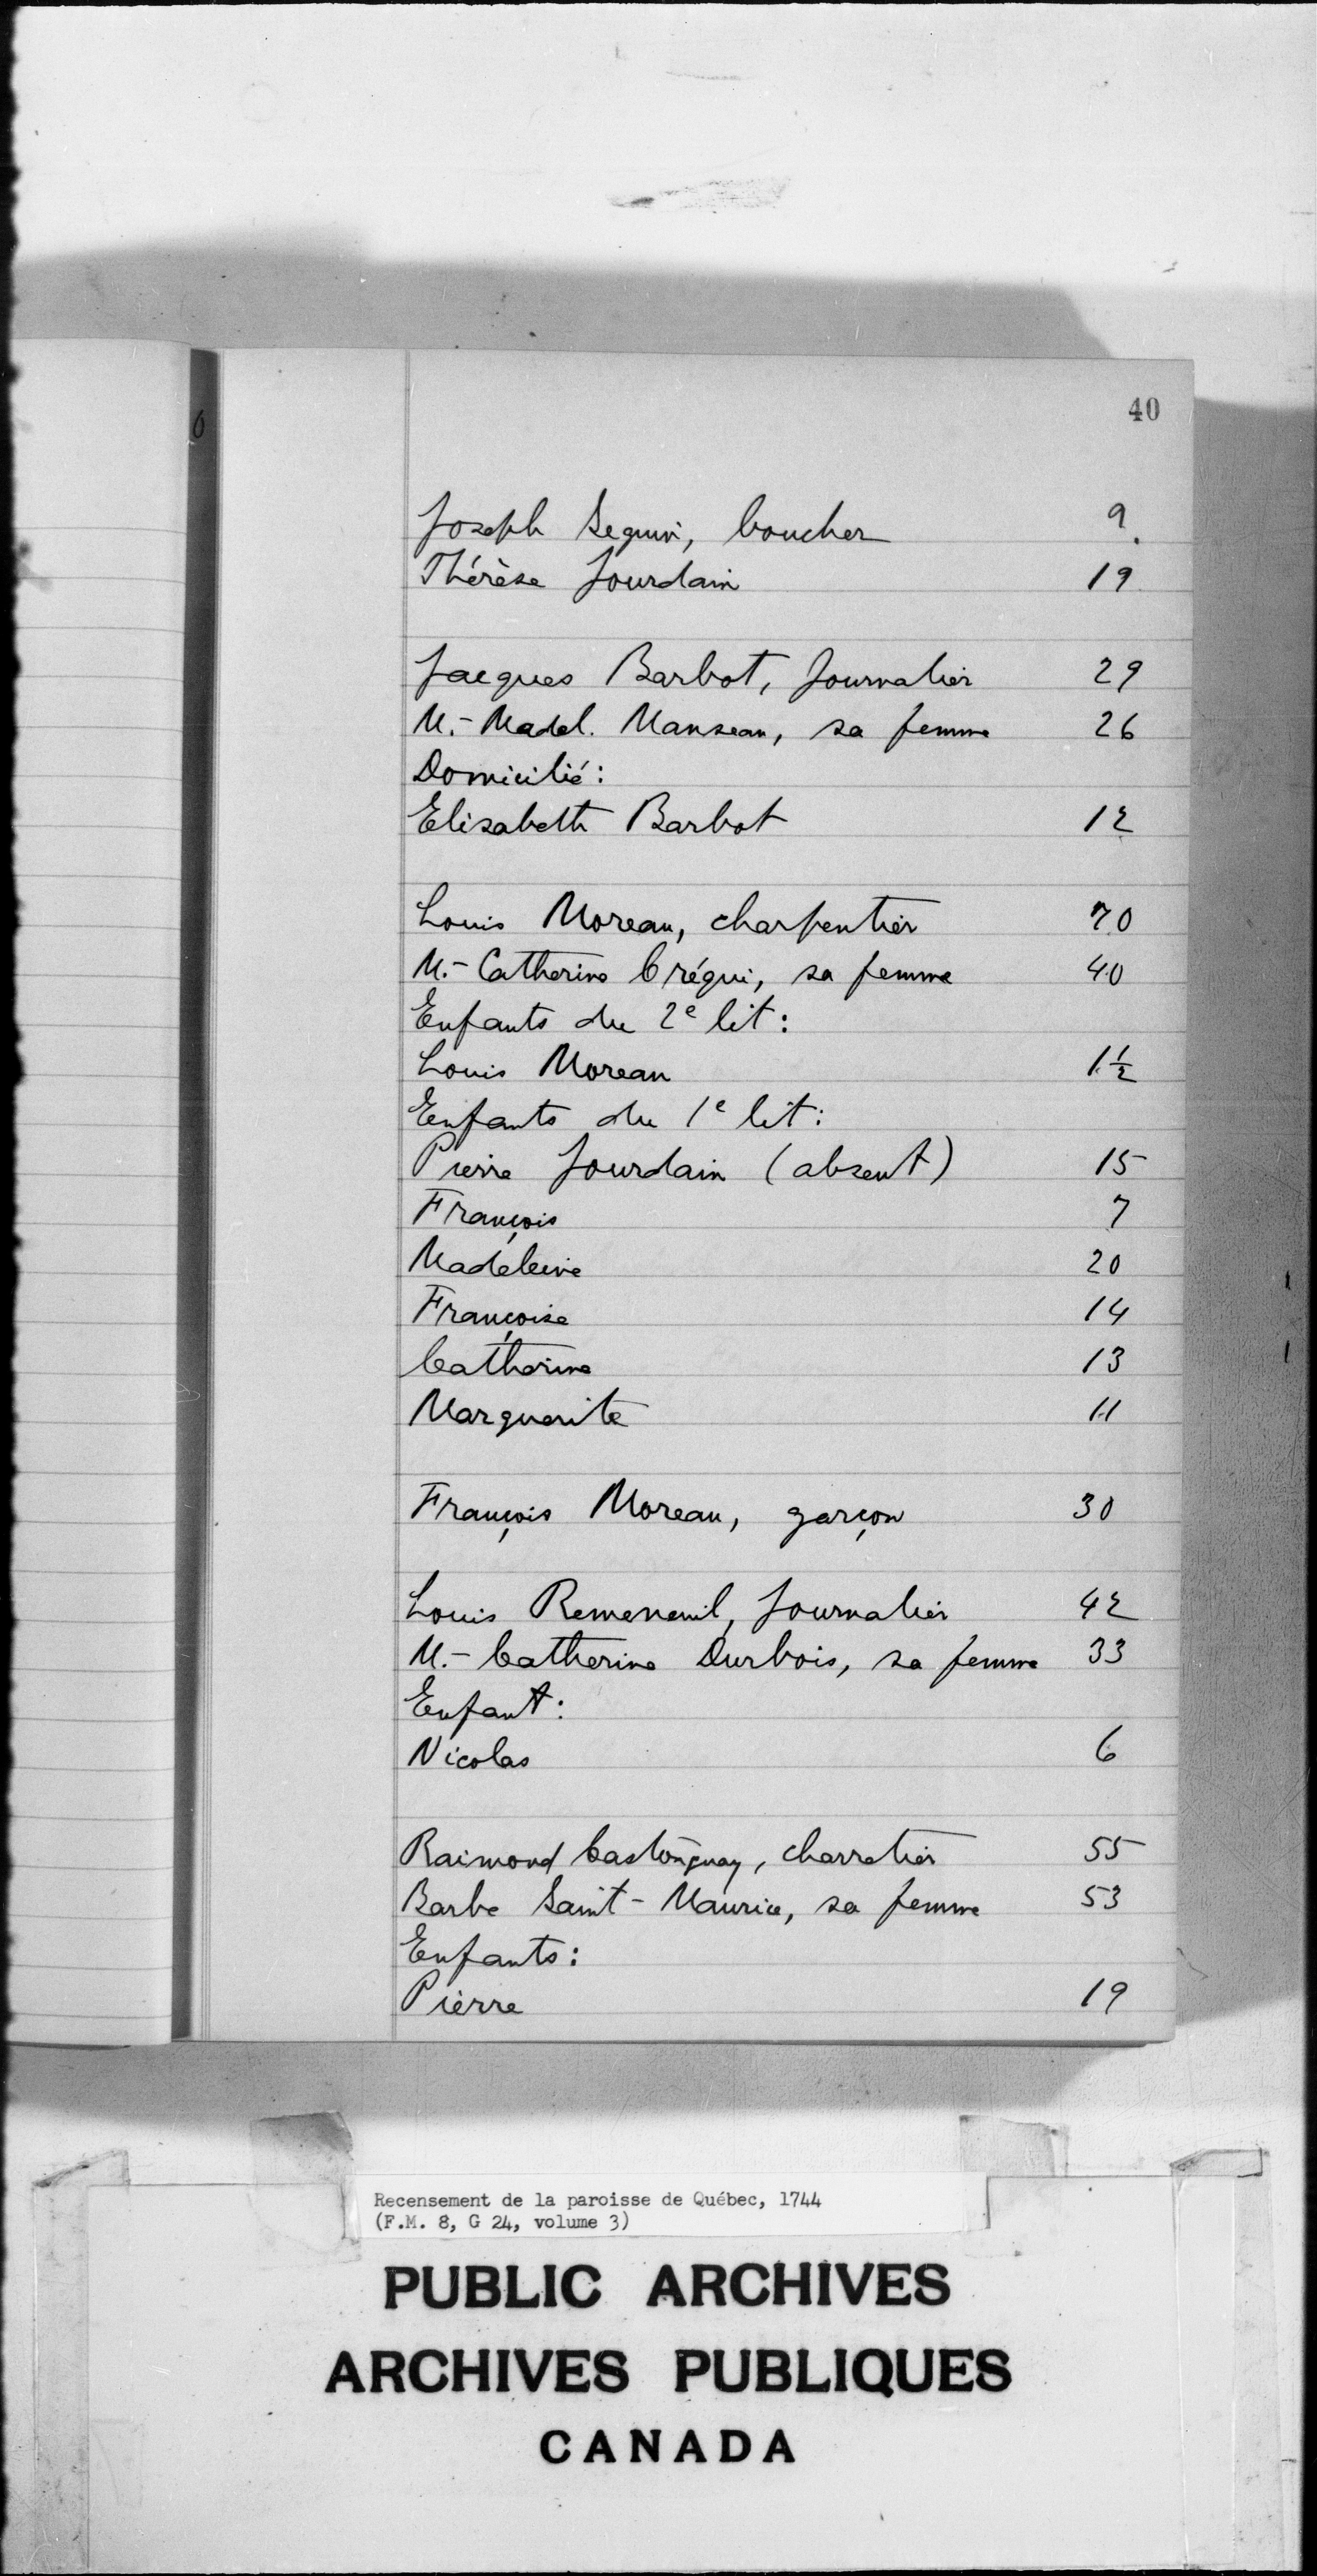 40
Joseph Seguin, boucher 9.
Thérèse Jourdain 19
Jacques Barbot, Journalier 29
M.-Madel. Manseau, sa femme 26
Domicilié:
Elisabeth Barbot 12
Louis Moreau, charpentier 70
M.-Catherine Créqui, sa femme 40
Enfants du 2e lit:
Louis Moreau 1½
Enfants du 1e lit:
Pierre Jourdain (absent) 15
François 7
Madeleine 20
Françoise 14
Catherine 13
Marguerite 11
François Moreau, garçon 30
Louis Remeneuil, Journalier 42
M.-Catherine Durbois, sa femme 33
Enfant:
Nicolas 6
Raimond Castonguay, charretier 55
Barbe Saint-Maurice, sa femme 53
Enfants:
Pierre 19
Recensement de la paroisse de Québec, 1744
(F.M. 8, G 24, volume 3)
PUBLIC ARCHIVES
ARCHIVES PUBLIQUES
CANADA